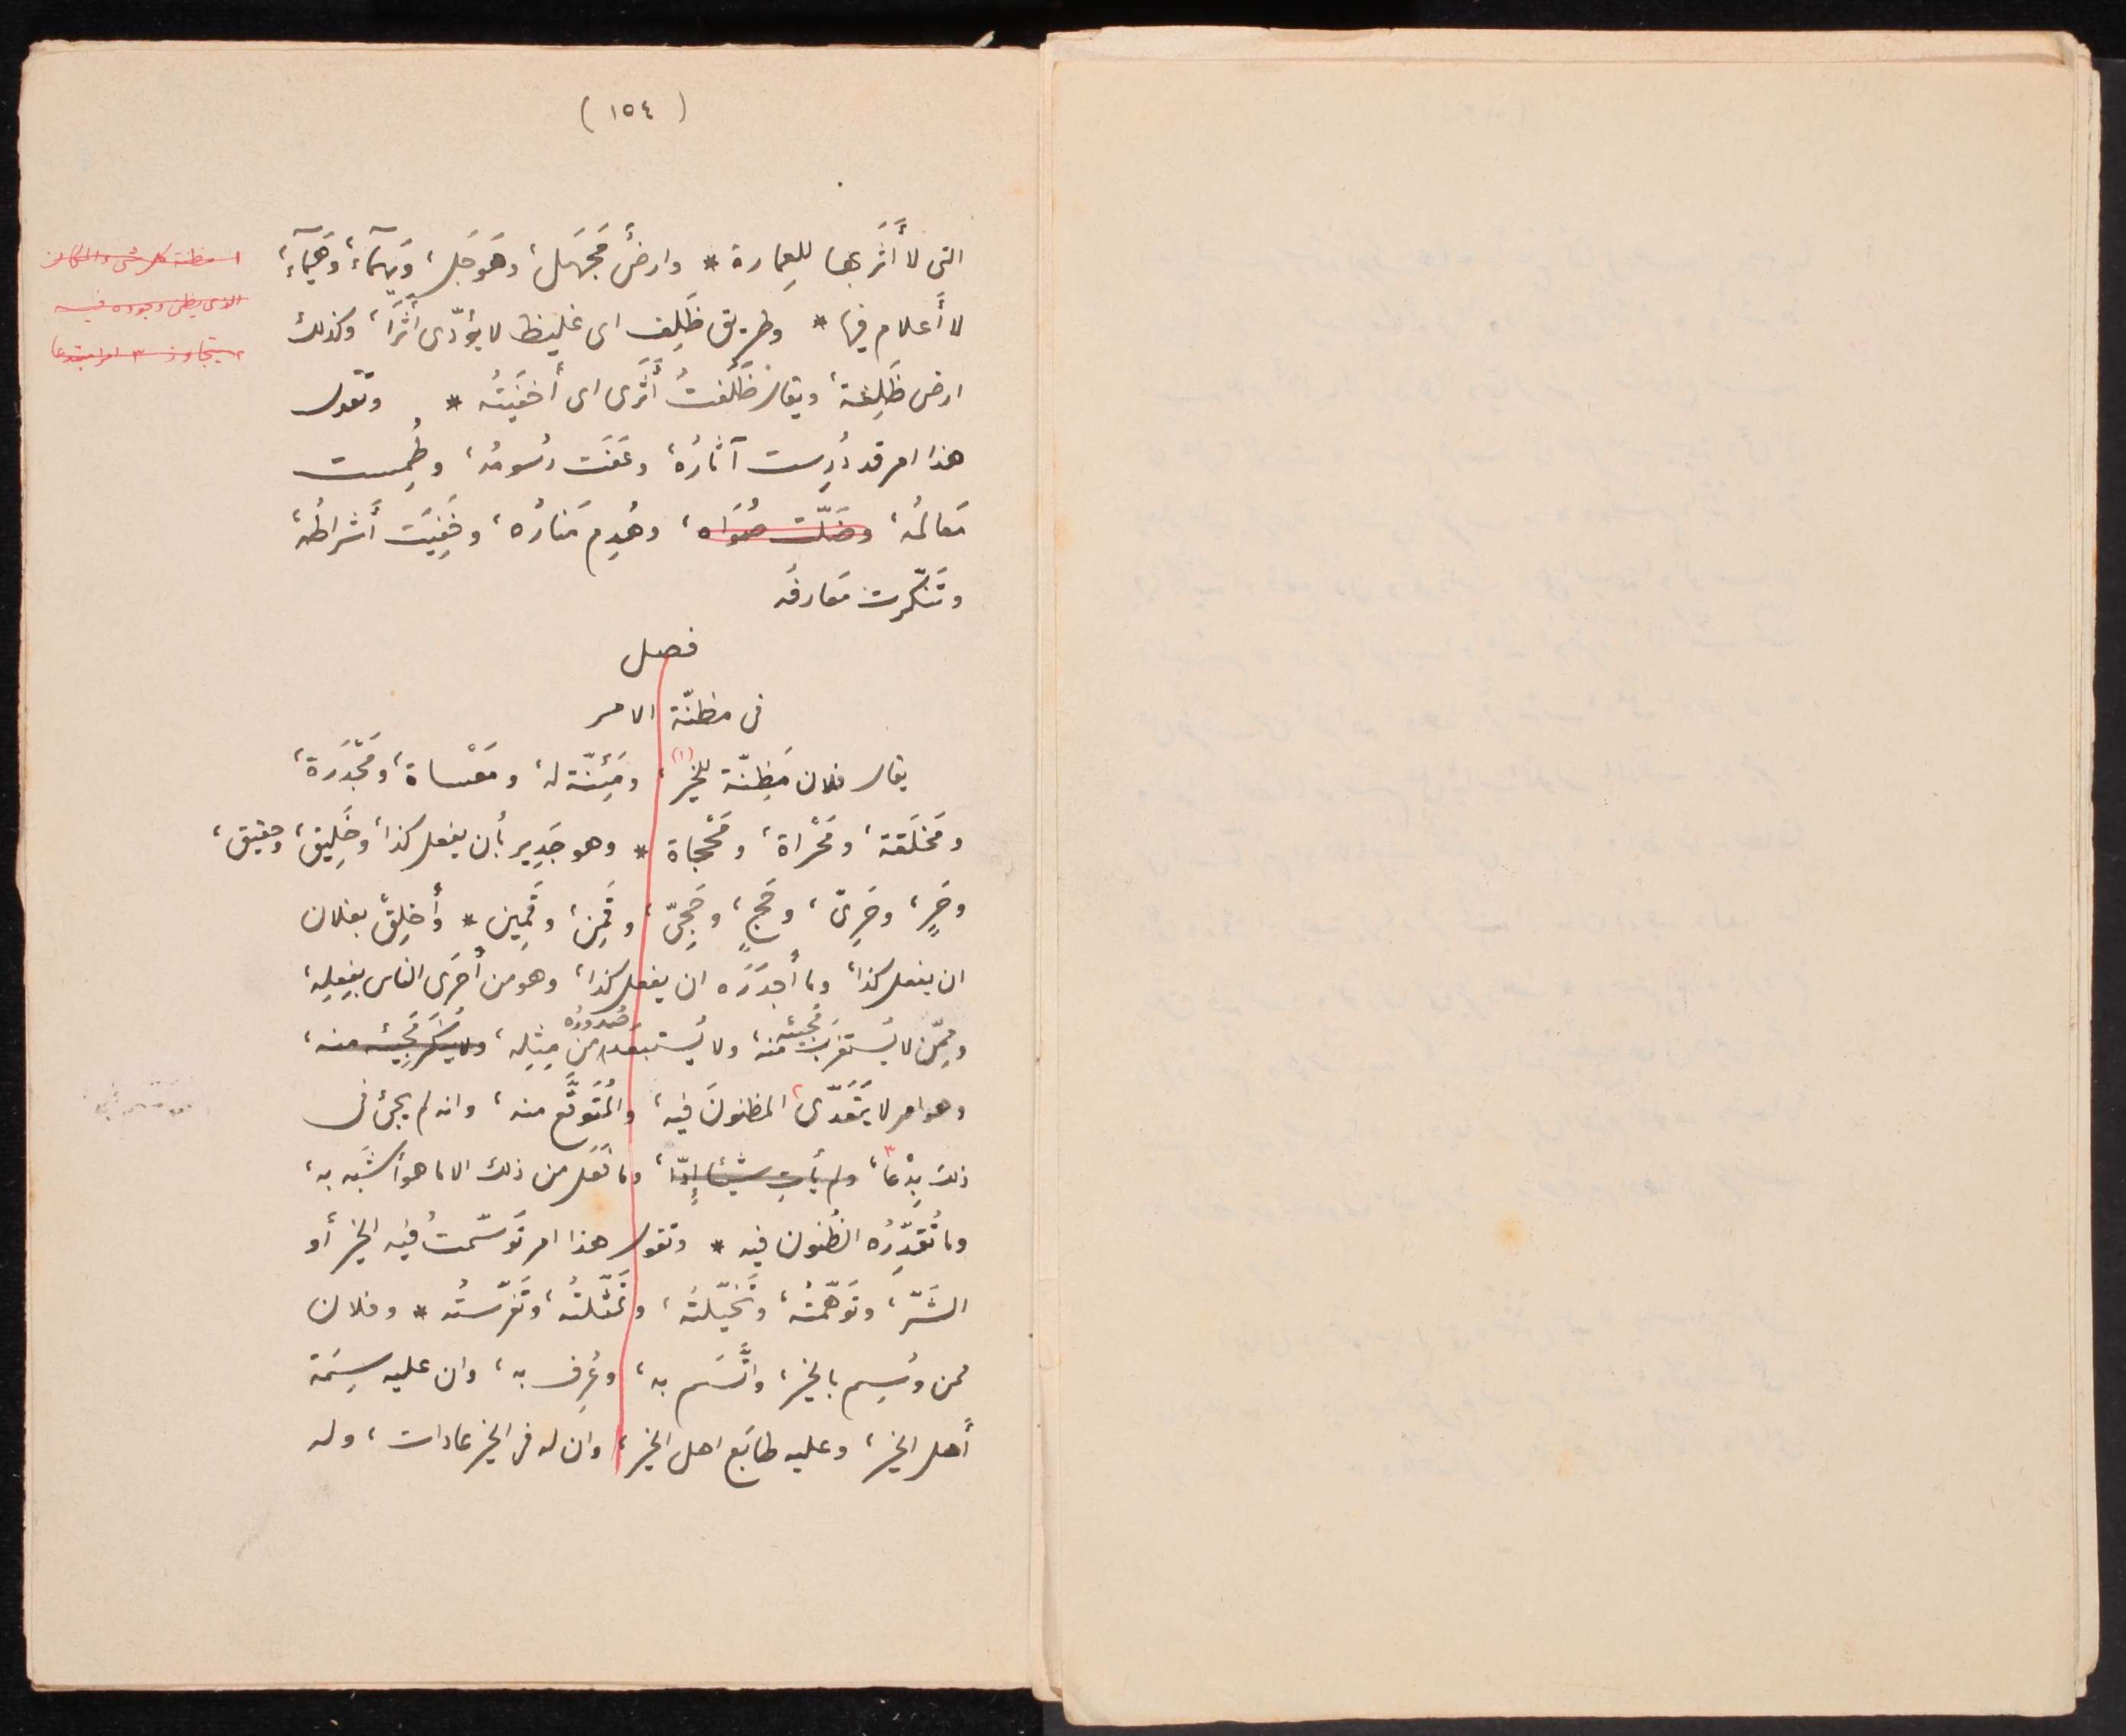 (١٥٤)
التي لا أَثَر بها للعِمارة * وارضٌ مَجْهَل، وهَوْجَل، ويَهْمَآء، وهَيْمَآء،
لا أَعلام فيها * وطريق ظَلِف اى غليظ لا يؤدّى أَثَرًا، وكذلك
ارض ظَلِفة، ويقال ظَلَفتُ أَثَرى اى أخفَيتُه * وتقول
هذا امر قد دُرِست آثارُهُ، وعَفَت رُسومُه، وطُمِست
مَعالمُه، وضَلّت صُوَاه، وهُدِم مَنارُه، وخَفِيَت أَشراطُه،
وتَنكّرت مَعارفُه
فصل
فى مظنّة الامر
يقال فلان مَظِنّة للخير (١)، ومَئِنّة له، ومَعْساة، ومَجْدَرة،
ومَخلَقة، ومَحْراة، ومَحْجاة * وهو جَدِير بأن يفعل كذا، وخَلِيق، وحقيق،
وحَرٍ، وحَرِىّ، وحَجٍ، وحَجِىّ، وقَمِن، وقَمِين * وأَخلِقْ بفلان
ان يفعل كذا، وما أجدَرَه ان يفعل كذا، وهو من أَحرَى الناس بفِعلِه،
ومِمّن لا يُستغرَب مَجيئه منه، ولا يُستبعَد صُدورُه من مِثلِه، ولا يُنكَر مَجِيئه منه،
وهو امر لا يَتَعَدّى ٢ المظنونَ فيه، والمُتَوقَّع منه، وانه لم يجئ فى
ذلك بِدْعًا ٣، ولم يأتِ شيئا إِدًّا، وما فَعَل من ذلك الا ما هو أشبَه به،
وما تُقدِّرُه الظُنون فيه * وتقول هذا امر تَوسّمتُ فيه الخير أو
الشَرّ، وتَوَهّمتُه، وتَخَيّلتُه، وتَمَثّلتُه، وتَفرّستُه * وفلان
ممن وُسِم بالخير، واتَّسَم به، وعُرِف به، وان عليه سِمَة
أَهل الخير، وعليه طابَع اهل الخير، وان له فى الخير عادات، وله
١ مظنة كل شىء المكان
الذى يظن وجوده فيه
٢ يتجاوز ٣ امرا مبتدعا